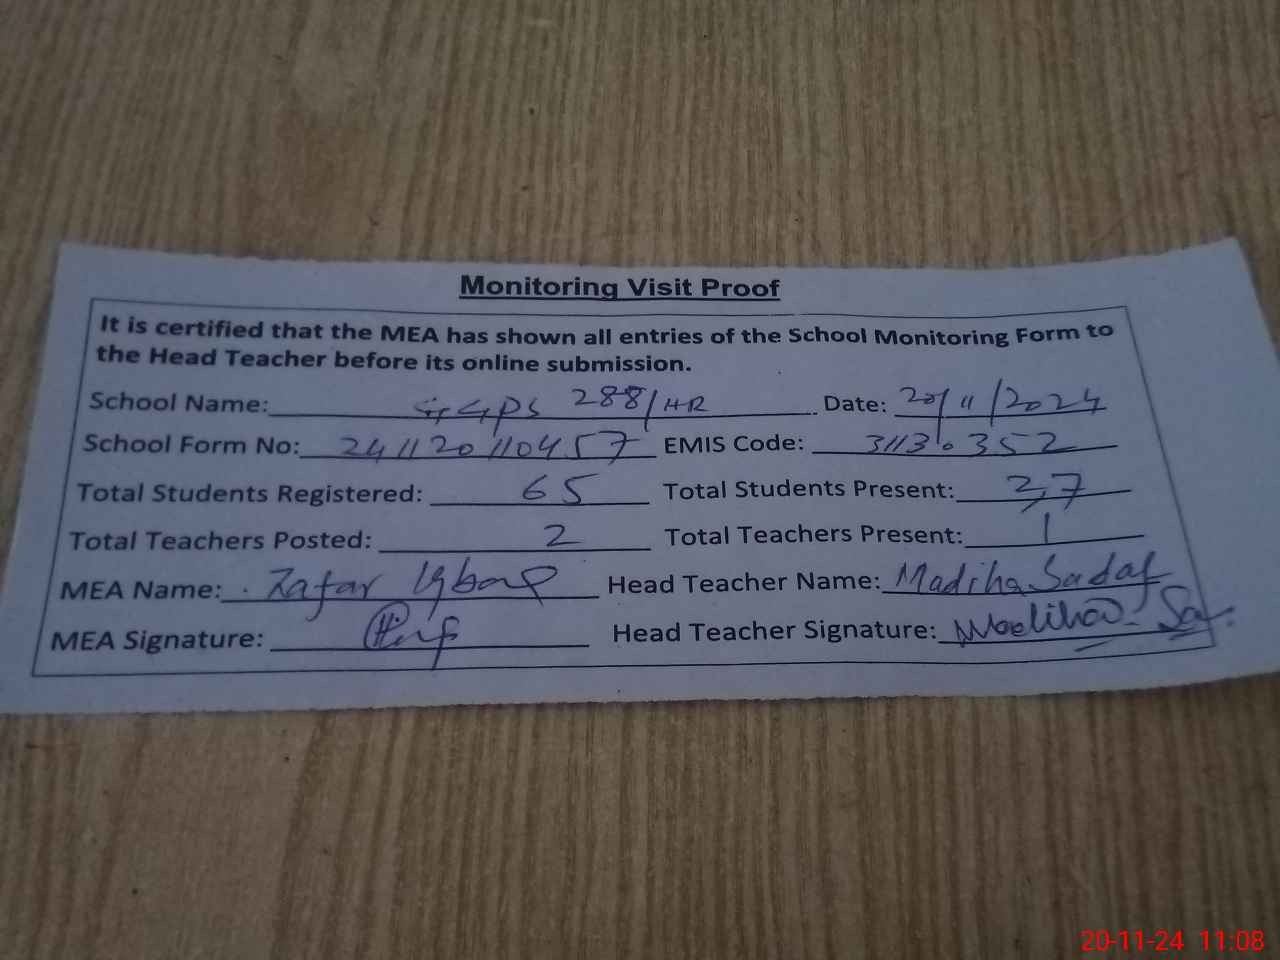 Monitoring Visit Proof
It is certified that the MEA has shown all entries of the School Monitoring Form to
the Head Teacher before its online submission.
School Name: GGPS 288/HR Date: 20/11/2024
School Form No: 241120110457 EMIS Code: 31130352
Total Students Registered: 65 Total Students Present: 37
Total Teachers Posted: 2 Total Teachers Present: 1
MEA Name: Zafar Iqbal Head Teacher Name: Madiha Sadaf
MEA Signature: Head Teacher Signature: Madiha Sa
20-11-24 11:08